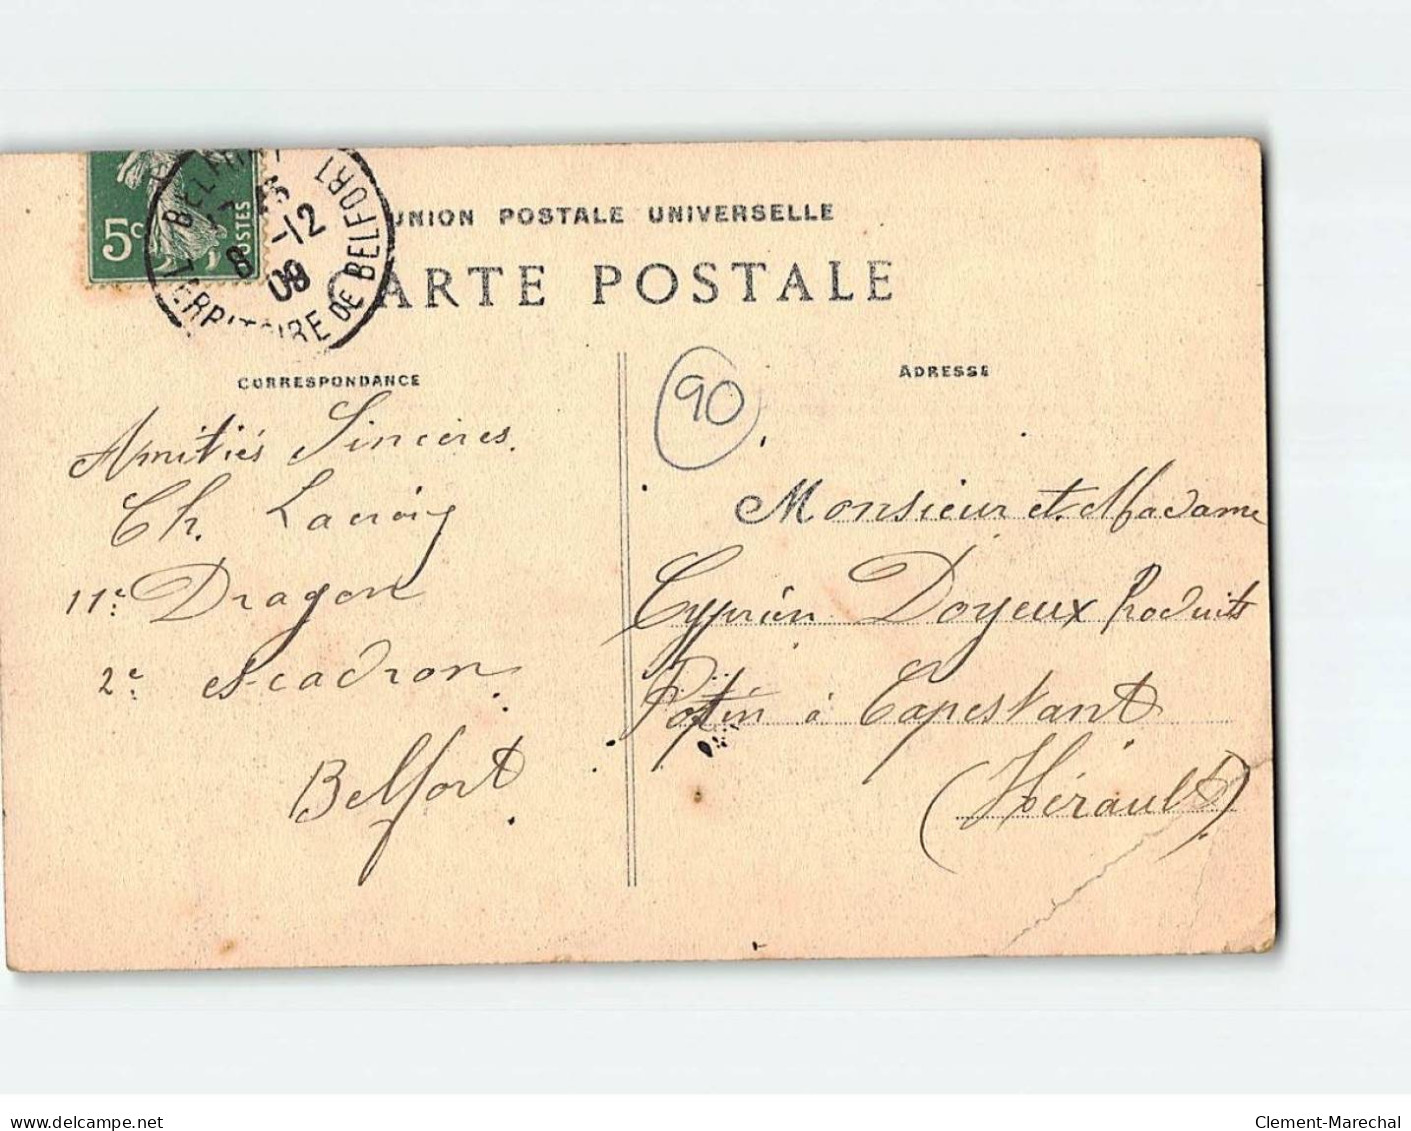 5c
POSTES
BELFORT
17 45
8 -12
09
TERRITOIRE DE BELFORT
UNION POSTALE UNIVERSELLE
CARTE POSTALE
CORRESPONDANCE
ADRESSE
90
Amitiés Sincères.
Ch. Lacroix
11e Dragon
2e escadron
Belfort
Monsieur et Madame
Cyprien Doyeux Produits
Potin à Capestant
(Hérault)
delcampe.net
Clement-Marechal